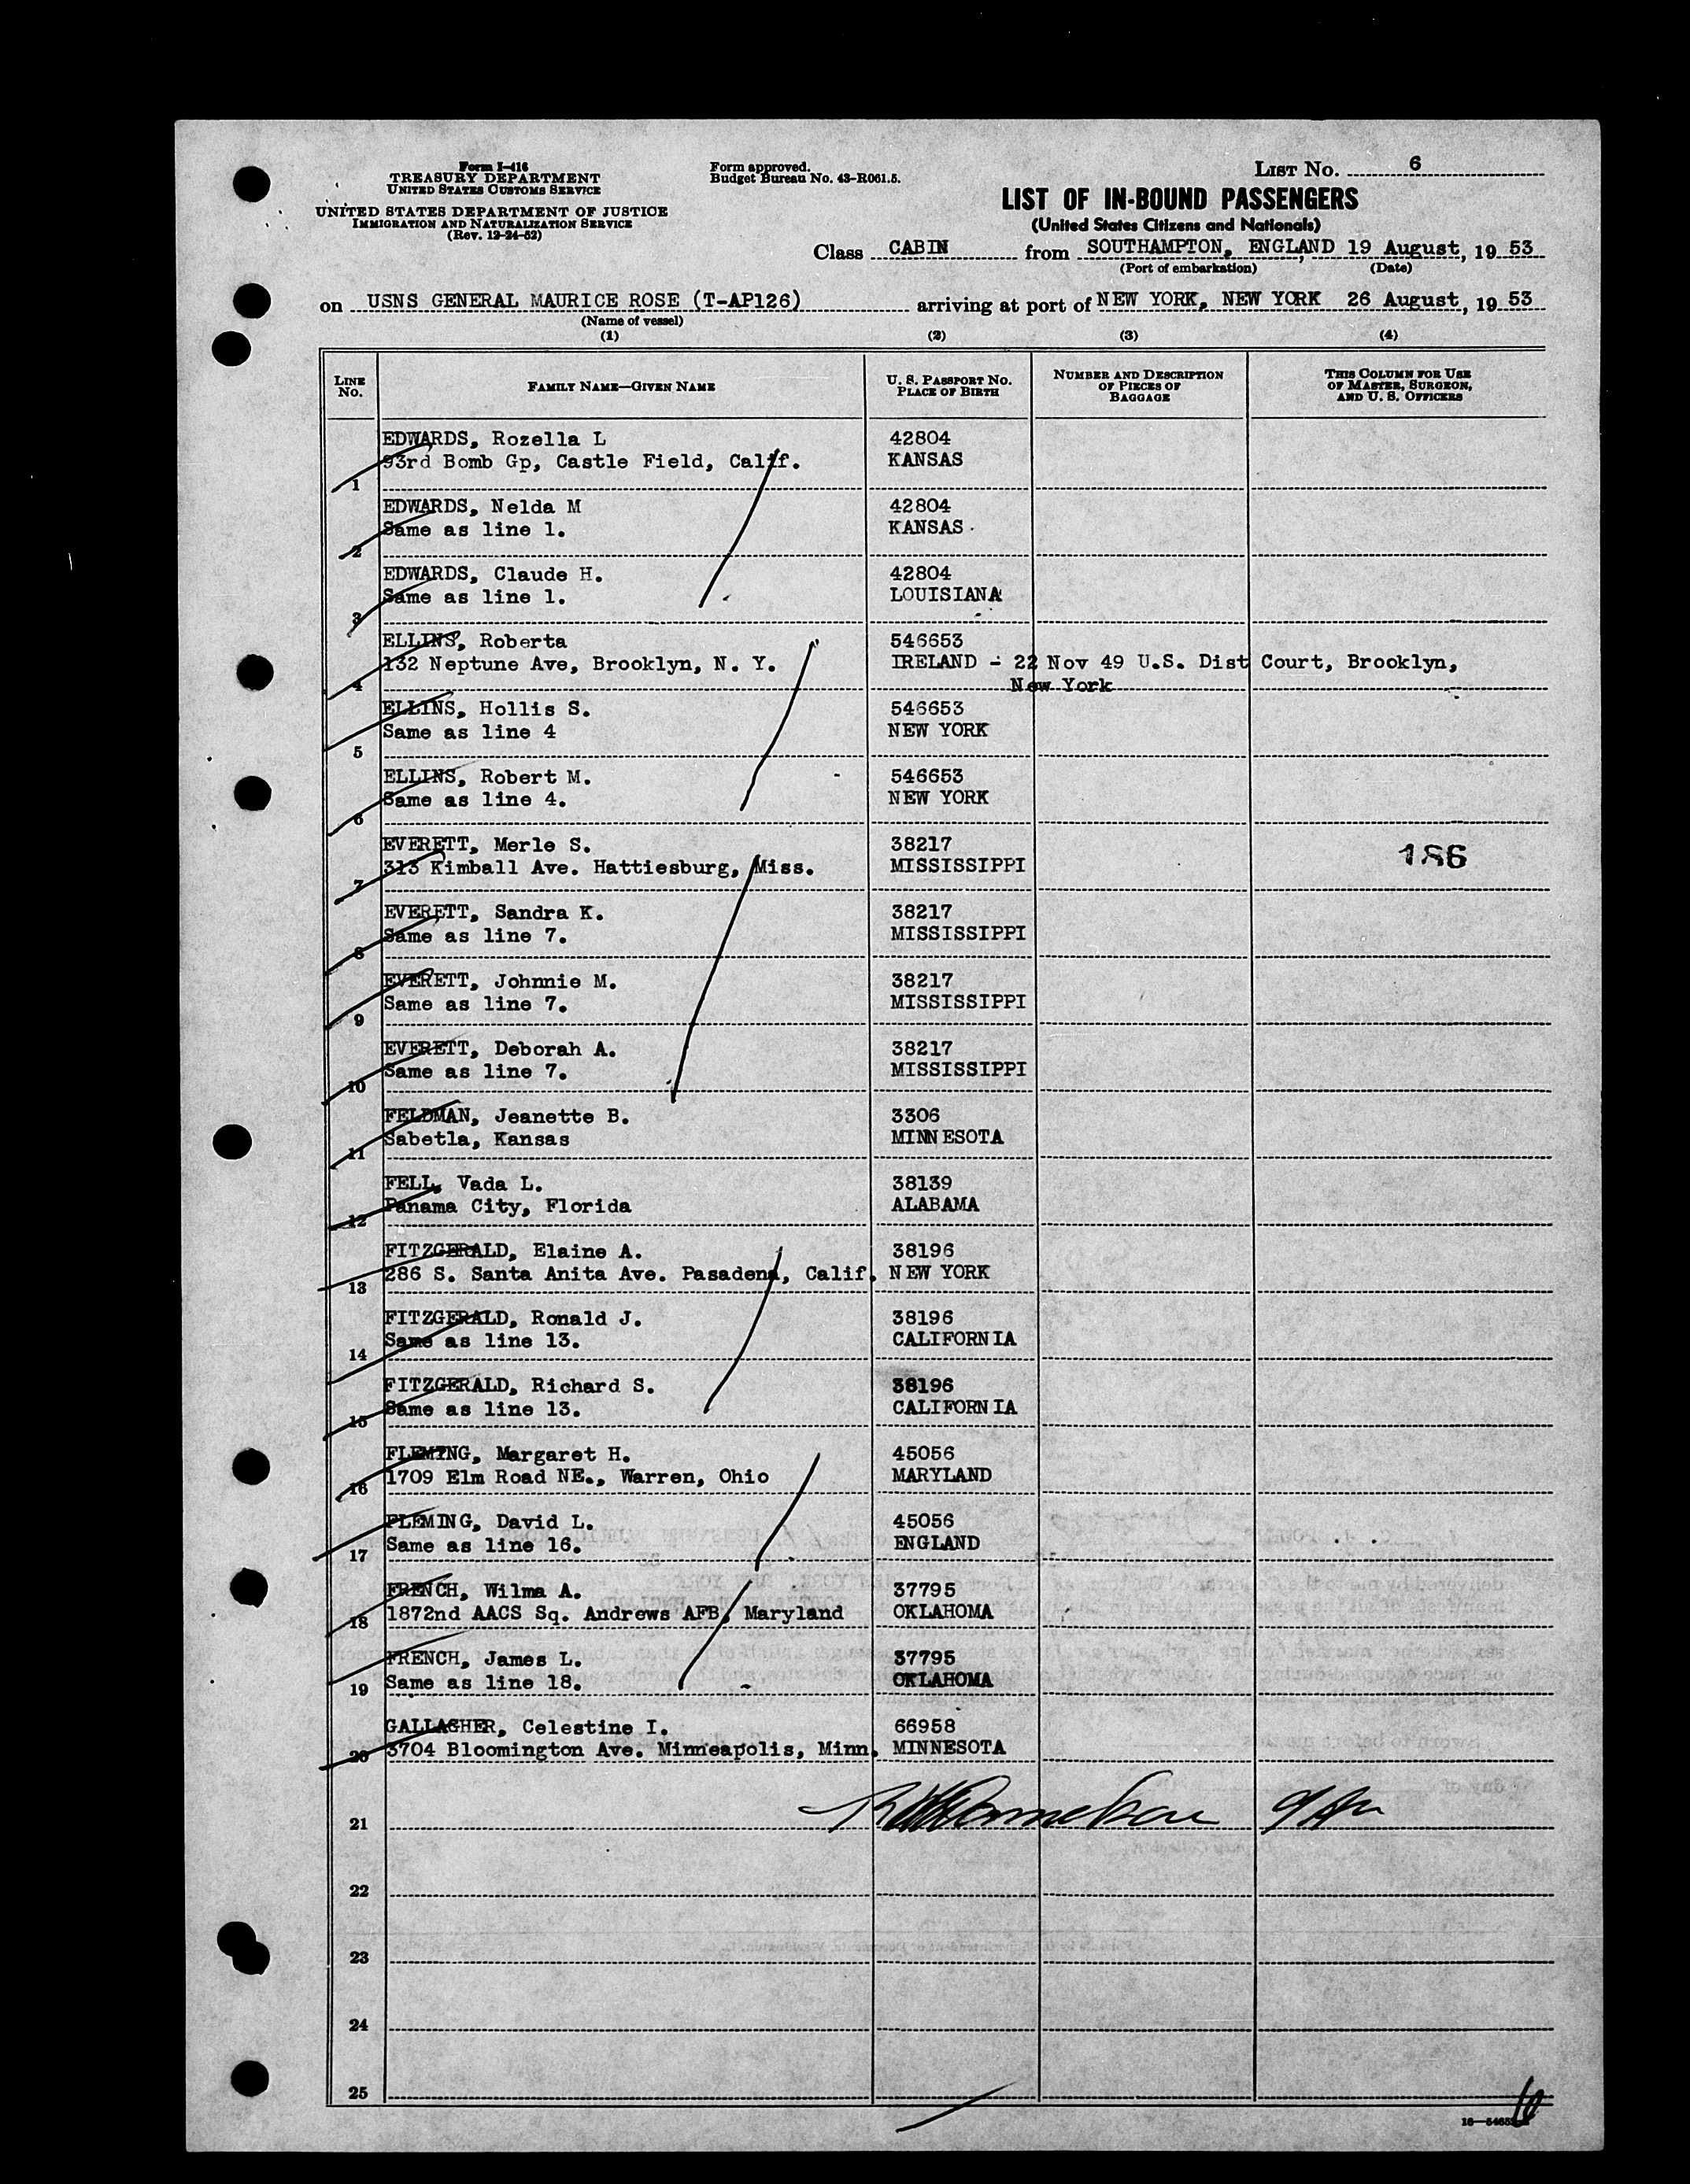 Form I-416
TREASURY DEPARTMENT
UNITED STATES CUSTOMS SERVICE
UNITED STATES DEPARTMENT OF JUSTICE
IMMIGRATION AND NATURALIZATION SERVICE
(Rev. 12-24-52)
Form approved.
Budget Bureau No. 43-R061.5.
LIST No. 6
LIST OF IN-BOUND PASSENGERS
(United States Citizens and Nationals)
Class CABIN from SOUTHAMPTON, ENGLAND, 19 August, 19 53
(Port of embarkation) (Date)
on USNS GENERAL MAURICE ROSE (T-AP126) arriving at port of NEW YORK, NEW YORK 26 August, 19 53
(Name of vessel)
(1) (2) (3) (4)
LINE No. FAMILY NAME—GIVEN NAME U. S. PASSPORT No. PLACE OF BIRTH NUMBER AND DESCRIPTION OF PIECES OF BAGGAGE THIS COLUMN FOR USE OF MASTER, SURGEON, AND U. S. OFFICERS
EDWARDS, Rozella L 42804
93rd Bomb Gp, Castle Field, Calif. KANSAS
1
EDWARDS, Nelda M 42804
Same as line 1. KANSAS
2
EDWARDS, Claude H. 42804
Same as line 1. LOUISIANA
3
ELLINS, Roberta 546653
132 Neptune Ave, Brooklyn, N. Y. IRELAND - 22 Nov 49 U.S. Dist Court, Brooklyn,
4 New York
ELLINS, Hollis S. 546653
Same as line 4 NEW YORK
5
ELLINS, Robert M. 546653
Same as line 4. NEW YORK
6
EVERETT, Merle S. 38217 186
313 Kimball Ave. Hattiesburg, Miss. MISSISSIPPI
7
EVERETT, Sandra K. 38217
Same as line 7. MISSISSIPPI
8
EVERETT, Johnnie M. 38217
Same as line 7. MISSISSIPPI
9
EVERETT, Deborah A. 38217
Same as line 7. MISSISSIPPI
10
FELDMAN, Jeanette B. 3306
Sabetla, Kansas MINNESOTA
11
FELL, Vada L. 38139
Panama City, Florida ALABAMA
12
FITZGERALD, Elaine A. 38196
286 S. Santa Anita Ave. Pasadena, Calif. NEW YORK
13
FITZGERALD, Ronald J. 38196
Same as line 13. CALIFORNIA
14
FITZGERALD, Richard S. 38196
Same as line 13. CALIFORNIA
15
FLEMING, Margaret H. 45056
1709 Elm Road NE., Warren, Ohio MARYLAND
16
FLEMING, David L. 45056
Same as line 16. ENGLAND
17
FRENCH, Wilma A. 37795
1872nd AACS Sq. Andrews AFB, Maryland OKLAHOMA
18
FRENCH, James L. 37795
Same as line 18. OKLAHOMA
19
GALLAGHER, Celestine I. 66958
3704 Bloomington Ave. Minneapolis, Minn. MINNESOTA
20
21
22
23
24
25